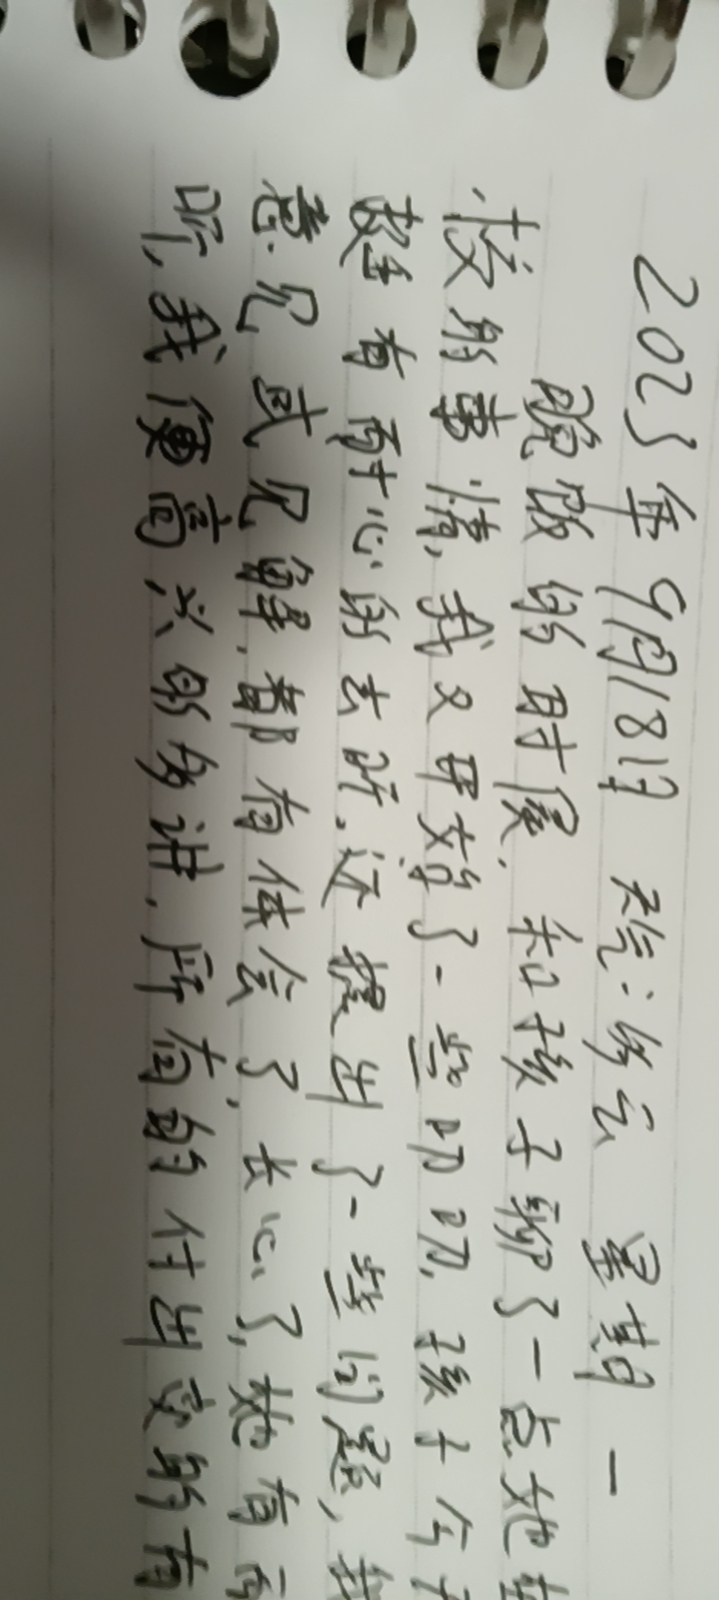 2023年9月18日 天气:多云 星期一
晚饭的时候,和孩子聊了一点她
校的事情,我又开始了一些叨叨,孩子今
挺有耐心的去听,还提出了一些问题,我
意见或见解,都有体会了,长心了,她有
听,我便高兴的多讲,所有的付出变的有